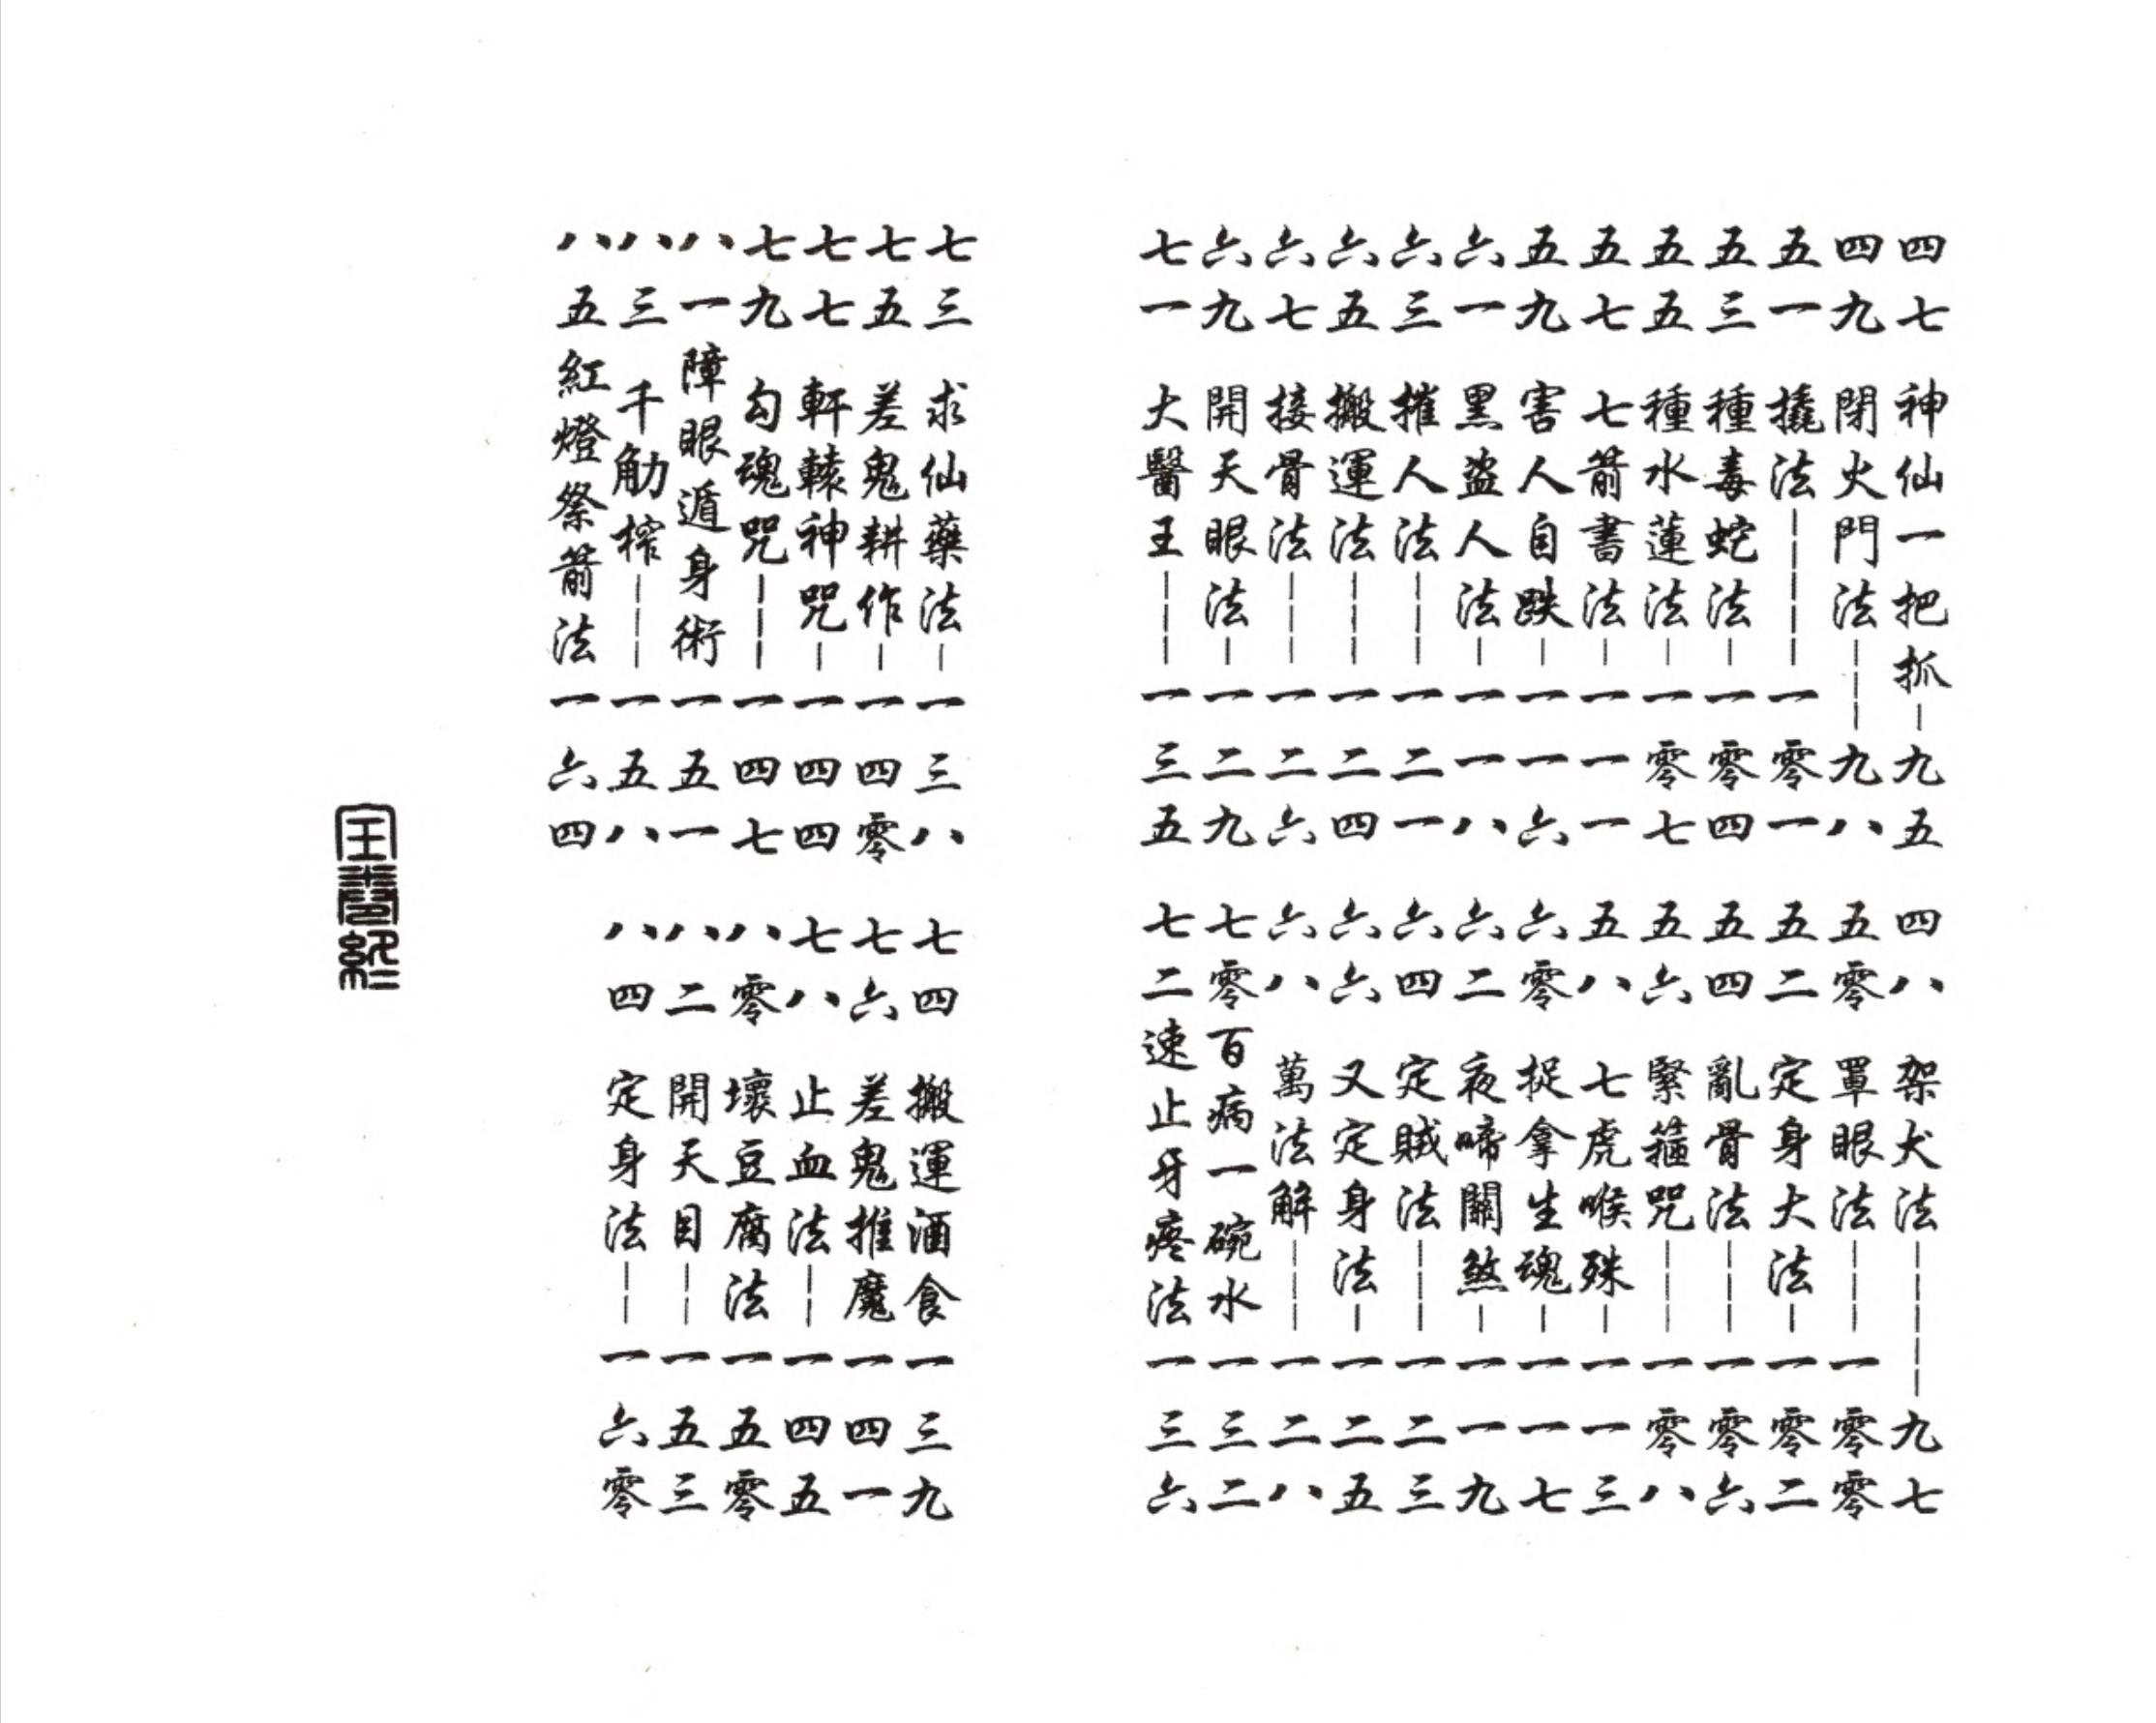 四七 神仙一把抓 九五
四八 架犬法 九七
四九 閉火門法 九八
五零 罩眼法 一零零
五一 撬法 一零一
五二 定身大法 一零二
五三 種毒蛇法 一零四
五四 亂骨法 一零六
五五 種水蓮法 一零七
五六 緊箍咒 一零八
五七 七箭書法 一一一
五八 七虎喉殊 一一三
五九 害人自跌 一一六
六零 捉拿生魂 一一七
六一 黑盜人法 一一八
六二 夜啼關煞 一一九
六三 摧人法 一二一
六四 定賊法 一二三
六五 搬運法 一二四
六六 又定身法 一二五
六七 接骨法 一二六
六八 萬法解 一二八
六九 開天眼法 一二九
七零 百病一碗水 一三二
七一 大醫王 一三五
七二 速止牙疼法 一三六
七三 求仙藥法 一三八
七四 搬運酒食 一三九
七五 差鬼耕作 一四零
七六 差鬼推魔 一四一
七七 軒轅神咒 一四四
七八 止血法 一四五
七九 勾魂咒 一四七
八零 壞豆腐法 一五零
八一 障眼遁身術 一五一
八二 開天目 一五三
八三 千觔榨 一五八
八四 定身法 一六零
八五 紅燈祭箭法 一六四